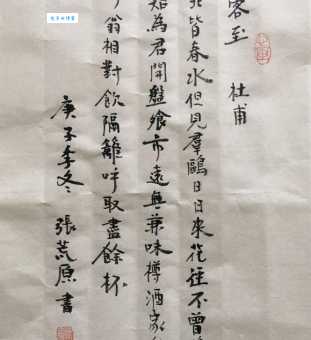 客至 杜甫
北皆春水但見羣鷗日日來花徑不曾
始為君開盤飧市遠無兼味樽酒家
翁相對飲隔籬呼取盡餘杯
庚子季冬 張荒原書